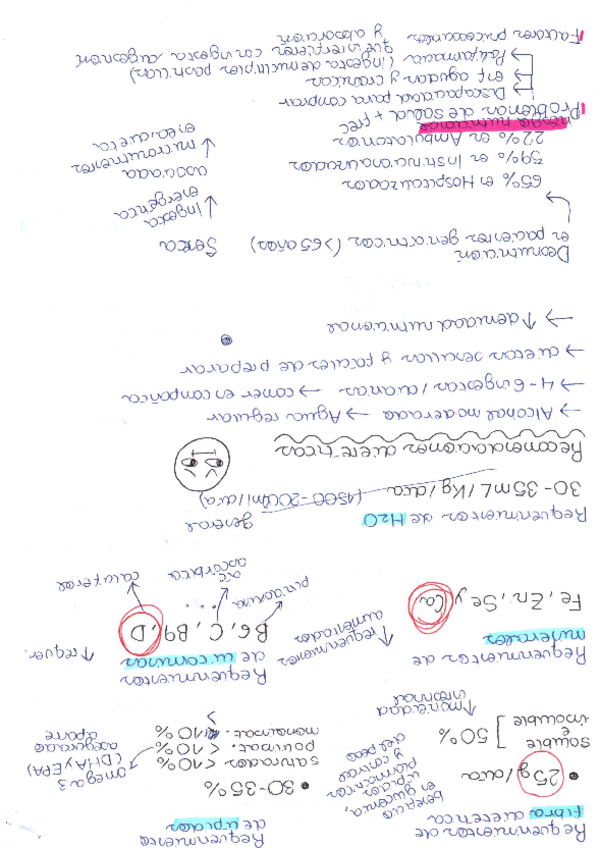 Requerimientos de
fibra dietética
• 25 g/día
beneficio
en glucemia,
lípidos
plasmáticos
y control
del peso
soluble
e
insoluble
] 50%
↑ motilidad
intestinal
Requerimientos
de lípidos
• 30-35%
saturados < 10%
poliinsat. < 10%
monoinsat.
omega 3
(DHA y EPA)
asegurado
aporte
Requerimientos de
minerales
Fe, Zn, Se y Ca
↑ requerimientos
aumentados
Requerimientos
de vitaminas
B6, C, B9, D
↑ requer.
piridoxina
ac.
ascórbico
...
calciferol
Requerimientos de H2O
general
30-35 mL/Kg/día (1500-2000ml/día)
Recomendaciones dietéticas
→ Alcohol moderado → Agua regular
→ 4-6 ingestas/diarias → comer en compañía
→ dietas sencillas y fáciles de preparar
→ ↑ densidad nutricional
Desnutrición
en pacientes geriátricos (>65 años)
65% en Hospitalizados
59% en Institucionalizados
22% en Ambulatorios
Seneca
↓ Ingesta
energética
asociada
↓ micronutrientes
en la dieta
Problemas de salud + frec
Discapacidad para comprar
→ enf agudas y crónicas
→ Polifarmacia (ingesta de múltiples pastillas)
que interfieren con ingesta, digestión
y absorción
Factores psicosociales